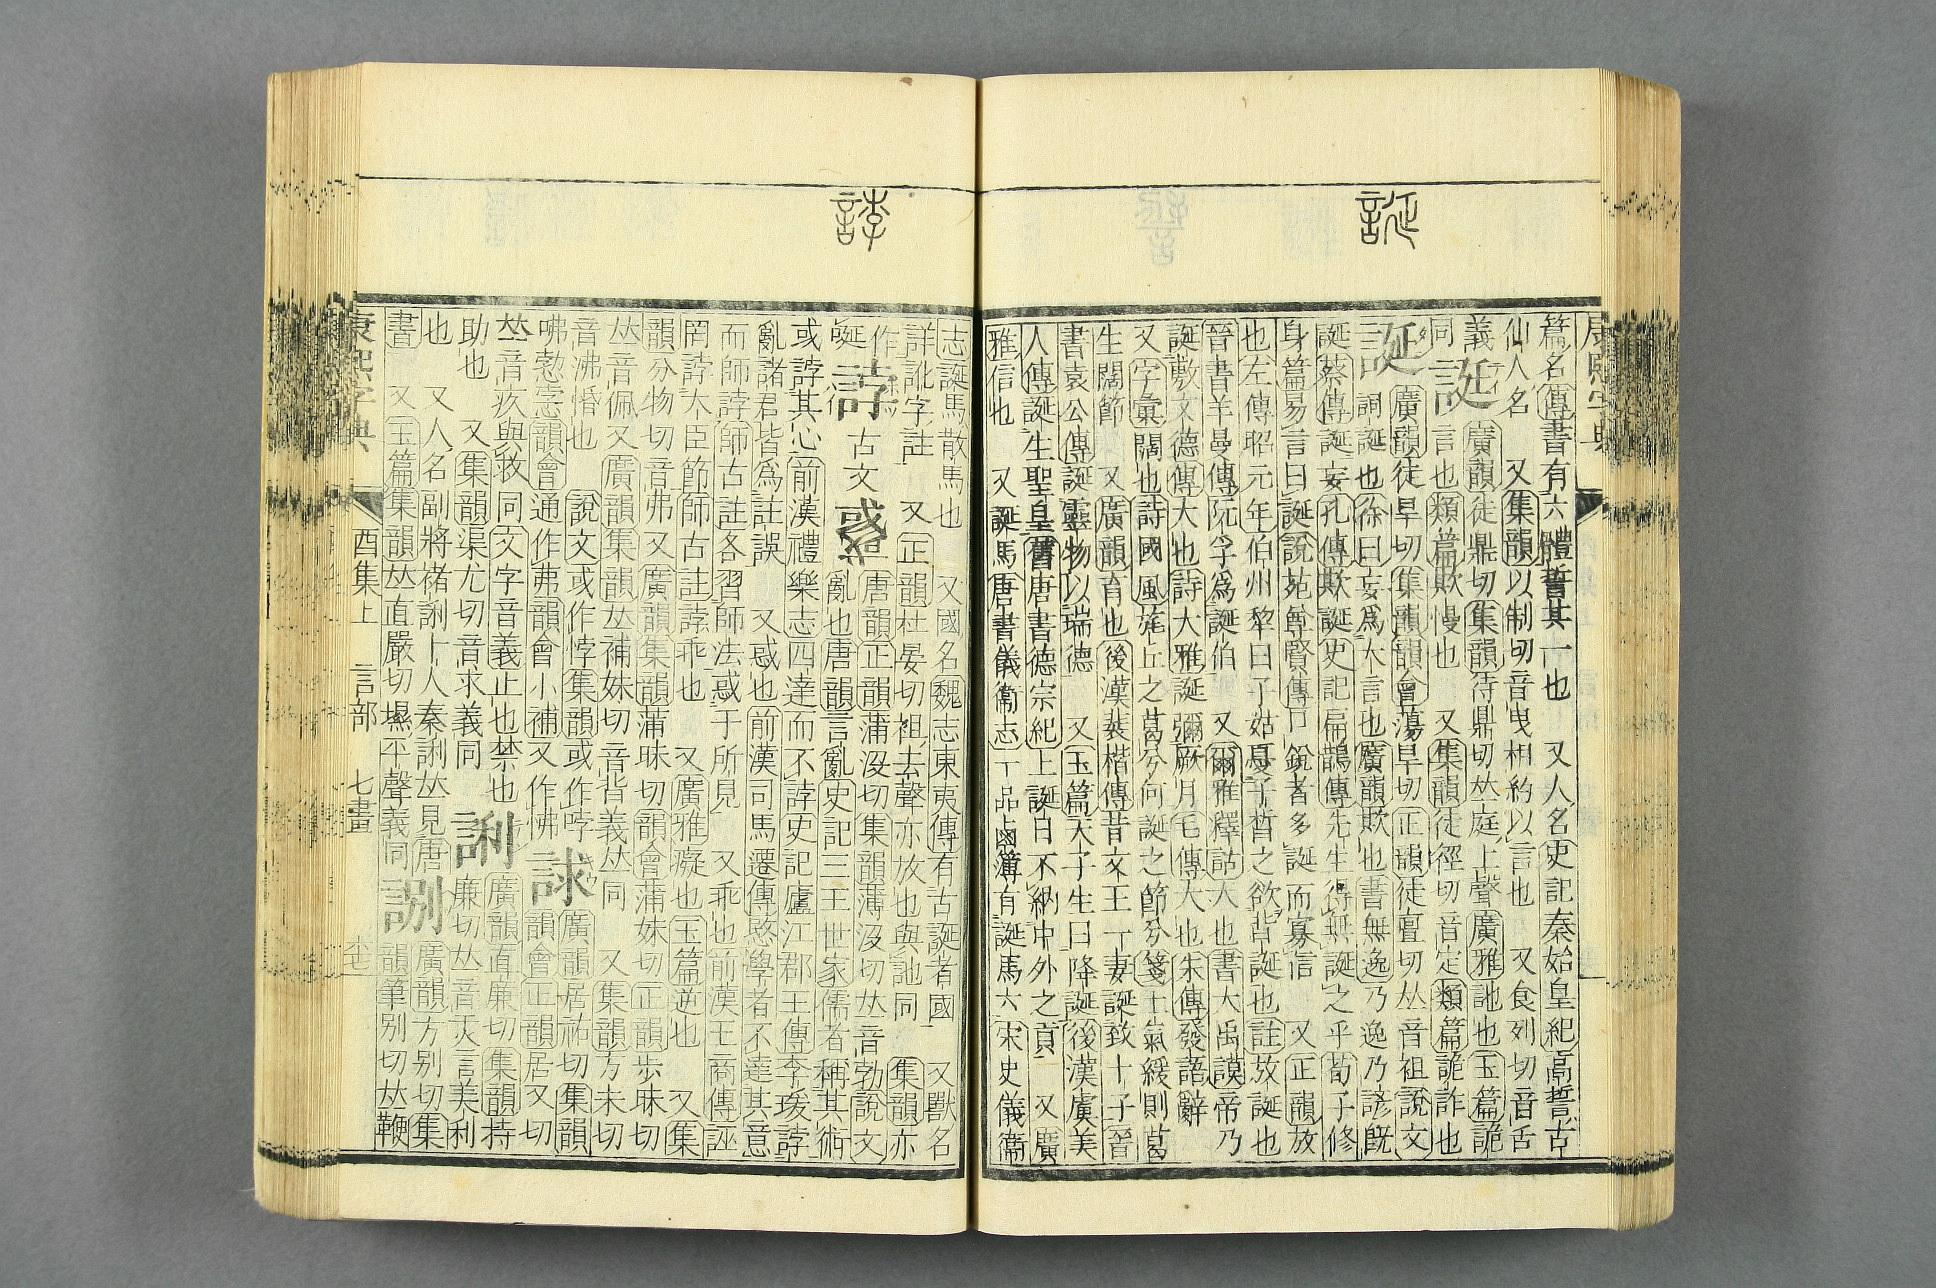 誕
篇名傳書有六體誓其一也　又人名史記秦始皇紀高誓古
仙人名　又集韻以制切音曳相約以言也　又食列切音舌
義同 誔 廣韻徒鼎切集韻待鼎切𠀤庭上聲廣雅訑也玉篇詭
言也類篇欺慢也　又集韻徒徑切音定類篇詭詐也
誕 廣韻徒旱切集韻韻會蕩旱切正韻徒亶切𠀤音袒說文
詞誕也徐曰妄爲大言也廣韻欺也書無逸乃逸乃諺旣
誕蔡傳誕妄孔傳欺誕史記扁鵲傳先生得無誕之乎荀子修
身篇易言曰誕說苑尊賢傳口銳者多誕而寡信　又正韻放
也左傳昭元年伯州犂曰子姑憂子晳之欲背誕也註放誕也
晉書羊曼傳阮孚爲誕伯　又爾雅釋詁大也書大禹謨帝乃
誕敷文德傳大也詩大雅誕彌厥月毛傳大也朱傳發語辭
又字彙闊也詩國風旄丘之葛兮何誕之節兮箋土氣緩則葛
生闊節　又廣韻育也後漢裴楷傳昔文王一妻誕致十子晉
書袁公傳誕靈物以瑞德　又玉篇天子生曰降誕後漢虞美
人傳誕生聖皇舊唐書德宗紀上誕日不納中外之貢　又廣
雅信也　又誕馬唐書儀衞志一品鹵簿有誕馬六宋史儀衞
誖
志誕馬散馬也　又國名魏志東夷傳有古誕者國　又獸名
詳訛字註　又正韻杜晏切袒去聲亦放也與訑同　集韻亦
作𧩙 誖 古文 㦯 唐韻正韻蒲沒切集韻薄沒切𠀤音勃說文
亂也唐韻言亂史記三王世家儒者稱其術
或誖其心前漢禮樂志四達而不誖史記廬江郡王傳李瑗誖
亂諸君皆爲註誤　又惑也前漢司馬遷傳愍學者不達其意
而師誖師古註各習師法惑于所見　又乖也前漢王商傳誣
罔誖大臣節師古註誖乖也　又廣雅癡也玉篇逆也　又集
韻分物切音弗　又廣韻集韻蒲昧切韻會蒲妹切正韻步昧切
𠀤音佩　又廣韻集韻𠀤補妹切音背義𠀤同　又集韻方未切
音沸惛也　說文或作悖集韻或作哱 𧧷 廣韻居祐切集韻
咈愗恴韻會通作弗韻會小補又作怫　韻會正韻居又切
𠀤音疚與救同文字音義止也禁也 𧧸 廣韻直廉切集韻持
助也　又集韻渠尤切音求義同 廉切𠀤音灵言美利
也　又人名副將褚𧧸十人秦𧧸𠀤見唐 𧧹 廣韻方别切集
書　又玉篇集韻𠀤直嚴切㙴平聲義同 韻筆别切𠀤鞭
康熙字典　酉集上　言部　七畫